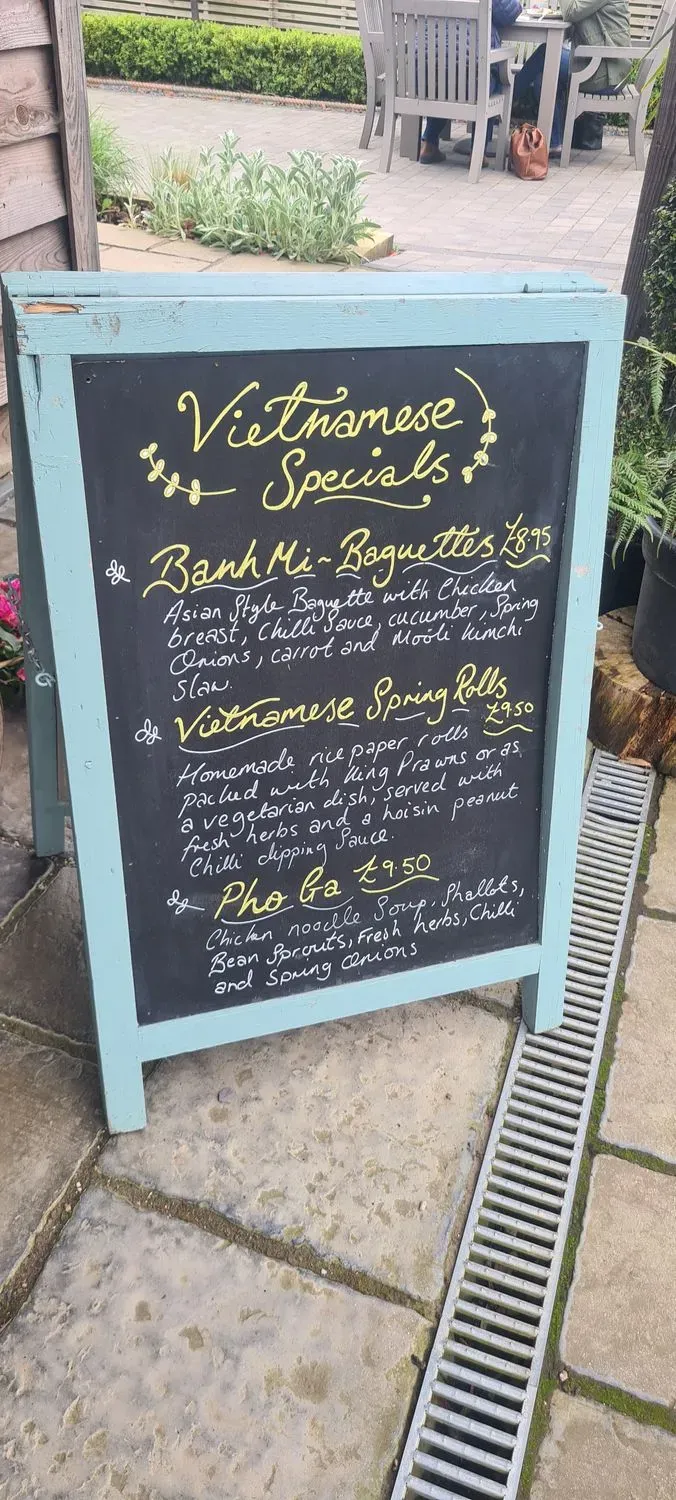 Vietnamese
Specials
Banh Mi ~ Baguettes £8.95
Asian Style Baguette with Chicken
breast, Chilli Sauce, cucumber, Spring
Onions, carrot and Mooli kimchi
Slaw.
Vietnamese Spring Rolls
£9.50
Homemade rice paper rolls
packed with King Prawns or as
a vegetarian dish, served with
fresh herbs and a hoisin peanut
Chilli dipping Sauce.
Pho Ga £9.50
Chicken noodle Soup, Shallots,
Bean Sprouts, Fresh herbs, Chilli
and Spring Onions